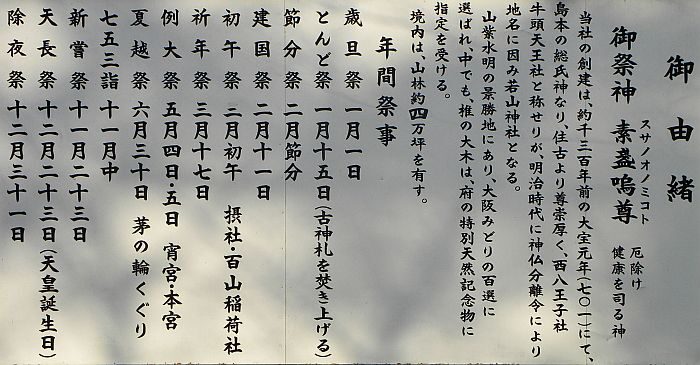 御由緒
御祭神 素盞嗚尊 厄除け
スサノオノミコト
健康を司る神
当社の創建は、約千三百年前の大宝元年(七〇一)にて、
島本の総氏神なり、住古より尊崇厚く、西八王子社
牛頭天王社と称せりが、明治時代に神仏分離令により
地名に因み若山神社となる。
山葉水明の景勝地にあり、大阪みどりの百選に
選ばれ、中でも、椎の大木は、府の特別天然記念物に
指定を受ける。
境内は、山林約四万坪を有す。
年間祭事
歳旦祭 一月一日
とんど祭 一月十五日(古神札を焚き上げる)
節分祭 二月節分
建国祭 二月十一日
初午祭 二月初午 摂社・百山稲荷社
祈年祭 三月十七日
例大祭 五月四日・五日 宵宮・本宮
夏越祭 六月三十日 茅の輪くぐり
七五三詣 十一月中
新嘗祭 十一月二十三日
天長祭 十二月二十三日(天皇誕生日)
除夜祭 十二月三十一日